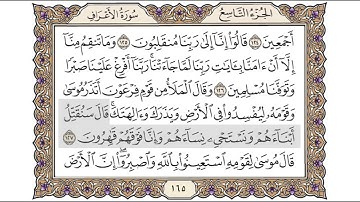 الجزء التاسع
سورة الأعراف
أَجْمَعِينَ ١٢٤ قَالُوٓا۟ إِنَّآ إِلَىٰ رَبِّنَا مُنقَلِبُونَ ١٢٥ وَمَا تَنقِمُ مِنَّآ
إِلَّآ أَنْ ءَامَنَّا بِـَٔايَـٰتِ رَبِّنَا لَمَّا جَآءَتْنَا رَبَّنَآ أَفْرِغْ عَلَيْنَا صَبْرًا
وَتَوَفَّنَا مُسْلِمِينَ ١٢٦ وَقَالَ ٱلْمَلَأُ مِن قَوْمِ فِرْعَوْنَ أَتَذَرُ مُوسَىٰ
وَقَوْمَهُۥ لِيُفْسِدُوا۟ فِى ٱلْأَرْضِ وَيَذَرَكَ وَءَالِهَتَكَ قَالَ سَنُقَتِّلُ
أَبْنَآءَهُمْ وَنَسْتَحْىِۦ نِسَآءَهُمْ وَإِنَّا فَوْقَهُمْ قَـٰهِرُونَ ١٢٧
قَالَ مُوسَىٰ لِقَوْمِهِ ٱسْتَعِينُوا۟ بِٱللَّهِ وَٱصْبِرُوٓا۟ إِنَّ ٱلْأَرْضَ
١٦٥